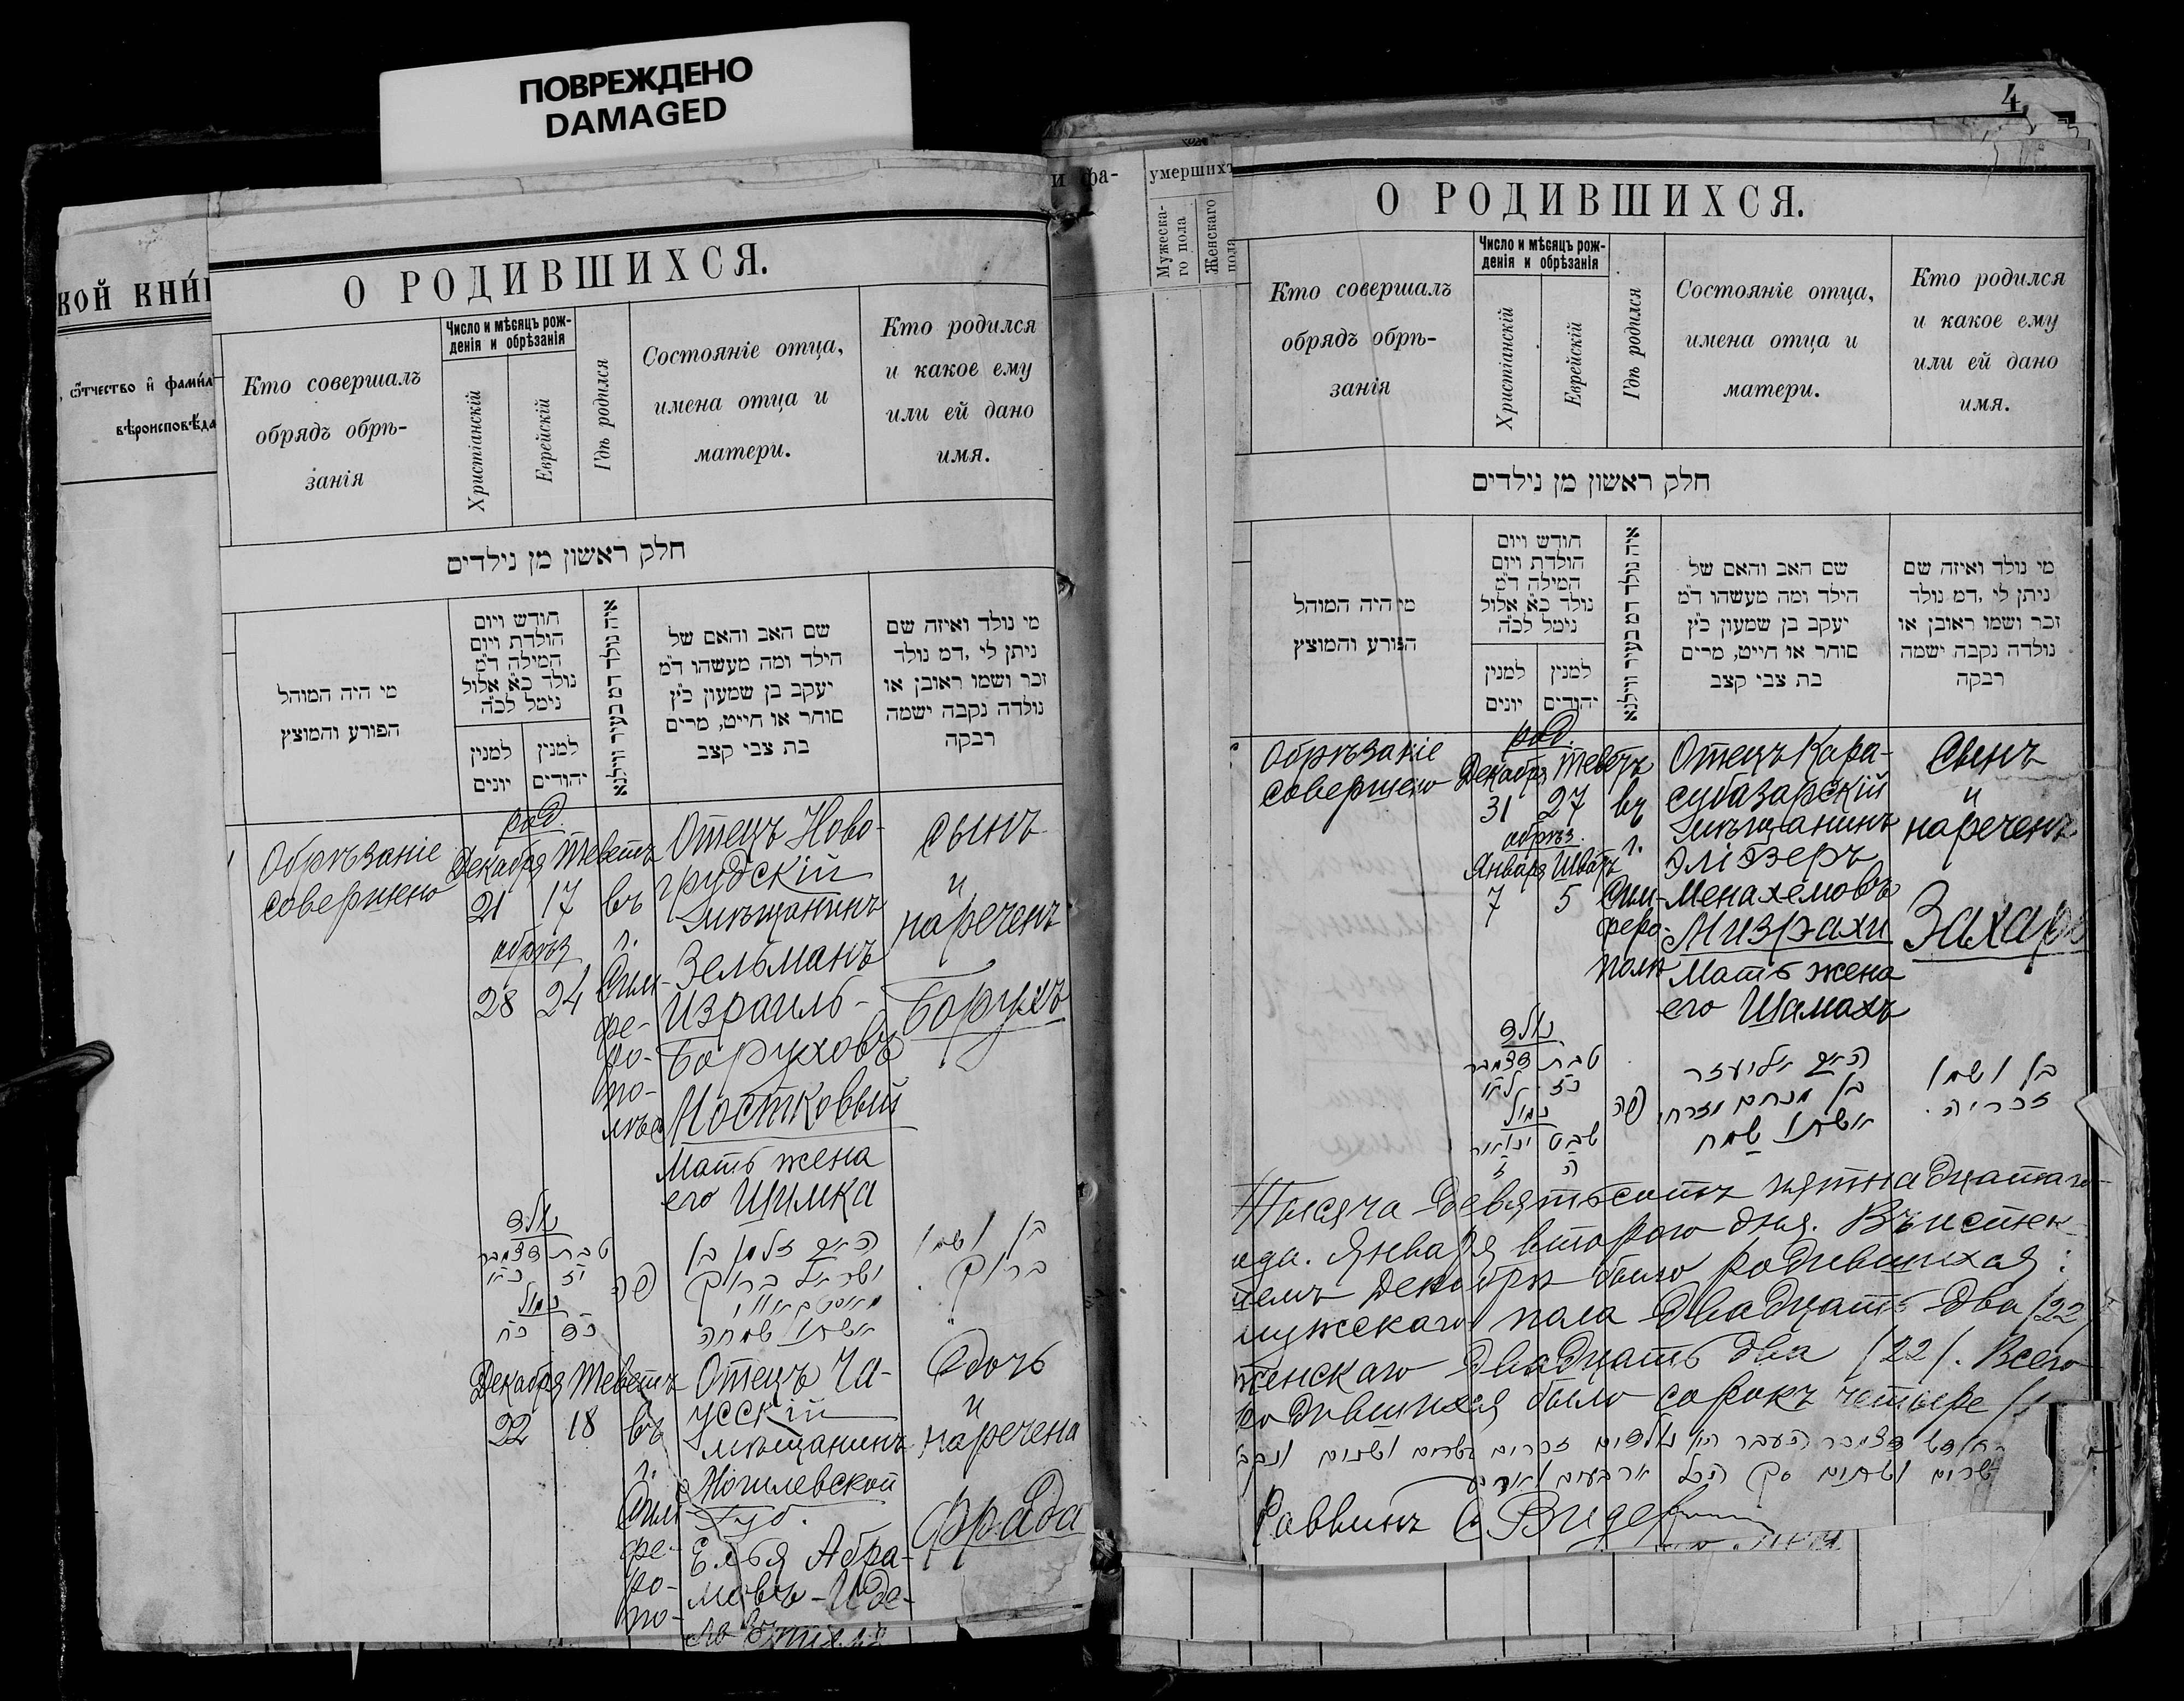 ПОВРЕЖДЕНО
DAMAGED
кой кни
, отчество и фамил
вѣроисповѣда
О РОДИВШИХСЯ.
Кто совершалъ
обрядъ обрѣ-
занія
Число и мѣсяцъ рож-
денія и обрѣзанія
Христіанскій
Еврейскій
Гдѣ родился
Состояніе отца,
имена отца и
матери.
Кто родился
и какое ему
или ей дано
имя.
חלק ראשון מן נילדים
מי היה המוהל
הפורע והמוצץ
חודש ויום
הולדת ויום
המילה ד"מ
נולד כ"א אלול
נימל לכ"ה
למנין
יונים
למנין
יהודים
איה נולד דמ בעיר ווילנא
שם האב והאם של
הילד ומה מעשהו ד"מ
יעקב בן שמעון כ"ץ
סוחר או חייט, מרים
בת צבי קצב
מי נולד ואיזה שם
ניתן לי ,דמ נולד
זכר ושמו ראובן או
נולדה נקבה ישמה
רבקה
Обрѣзаніе
совершено
род.
Декабря Теветъ
21 17
обрѣз
28 24
въ
г.
Сим-
фе-
ро-
по-
лѣ
Отецъ Ново-
грудскій
мѣщанинъ
Зельманъ
Израиль-
Боруховъ
Мостковый
Мать жена
его Шимка
сынъ
и
нареченъ
Борухъ
נולד
טבת דצמבר
יז כא
נמול
כד כח
פה
האב זלמן בן
ישראל ברוך
אשתו שמחה
בן ושמו
ברוך .
Декабря Теветъ
22 18
въ
г.
Сим-
фе-
ро-
по-
Отецъ Ча-
усскій
мѣщанинъ
Могилевской
Губ.
Елья Абра-
мовъ-Иде-
Дочь
и
наречена
Фрада
и фа-
умершихъ
Мужеска-
го пола
Женскаго
пола
4
О РОДИВШИХСЯ.
Кто совершалъ
обрядъ обрѣ-
занія
Число и мѣсяцъ рож-
денія и обрѣзанія
Христіанскій
Еврейскій
Гдѣ родился
Состояніе отца,
имена отца и
матери.
Кто родился
и какое ему
или ей дано
имя.
חלק ראשון מן נילדים
מי היה המוהל
הפורע והמוצץ
חודש ויום
הולדת ויום
המילה ד"מ
נולד כ"א אלול
נימל לכ"ה
למנין
יונים
למנין
יהודים
איה נולד דמ בעיר ווילנא
שם האב והאם של
הילד ומה מעשהו ד"מ
יעקב בן שמעון כ"ץ
סוחר או חייט, מרים
בת צבי קצב
מי נולד ואיזה שם
ניתן לי ,דמ נולד
זכר ושמו ראובן או
נולדה נקבה ישמה
רבקה
Обрѣзаніе
совершено
род.
Декабря Теветъ
31 27
обрѣз.
Января Шватъ
7 5
въ
г.
Сим-
феро-
полѣ
Отецъ Кара-
субазарскій
мѣщанинъ
Эліэзеръ
Менахемовъ
Мизрахи
Мать жена
его Шамахъ
Сынъ
и
нареченъ
Захарь
נולד
טבת דצמבר
כז לא
נמול
שבט ינואר
ה ז
פה
האב אליעזר
בן מנחם מזרחי
אשתו שמח
בן ושמו
זכריה .
Тысяча девятьсотъ пятнадцатаго
ода. Января второго дня. Въ истек-
шемъ Декабрѣ было родившихся :
мужскаго пола двадцать два /22/
женскаго двадцать два /22/. Всего
родившихся было сорокъ четыре /
חודש דצמבר העבר היו נולדים זכרים עשרים ושנים ונקב
עשרים ושתים סך הכל ארבעים וארבע
Раввинъ